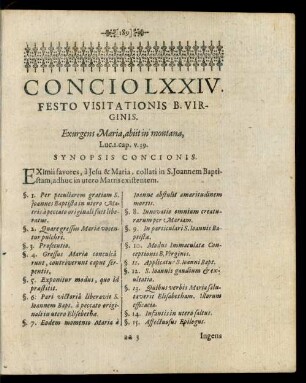 [189]
CONCIO LXXIV.
FESTO VISITATIONIS B. VIR-
GINIS.
Exurgens Maria, abiit in montana,
Luc.1. cap. v.39.
SYNOPSIS CONCIONIS.
EXimii favores, à Jesu & Maria, collati in S. Joannem Bapti-
stam, adhuc in utero Matris existentem.
§. 1. Per peculiarem gratiam S.
Joannes Baptista in utero Ma-
tris à peccato originali fuit libe-
ratus.
§. 2. Quare gressus Maria vocen-
tur pulchri.
§. 3. Prosecutio.
§. 4. Gressus Maria comunicâ-
runt, contriverunt caput ser-
pentis.
§. 5. Exponitur modus, quo id
præstitit.
§. 6. Pari victoriâ liberavit S.
Joannem Bapt. à peccato origi-
nali in utero Elisabethæ.
§. 7. Eodem momento Maria à
Joanne abstulit amaritudinem
mortis.
§. 8. Innovatio omnium creatu-
rarum per Mariam.
§. 9. In particulari S. Joannis Ba-
ptistæ.
§. 10. Modus Immaculata Con-
ceptionis B. Virginis.
§. 11. Applicatur S. Joanni Bapt.
§. 12. S. Joannis gaudium & ex-
ultatio.
§. 13. Quibus verbis Maria salu-
taverit Elisabetham. Illorum
efficacia.
§. 14. Infantis in utero saltus.
§. 15. Affectuosus Epilogus.
aa 3 Ingens